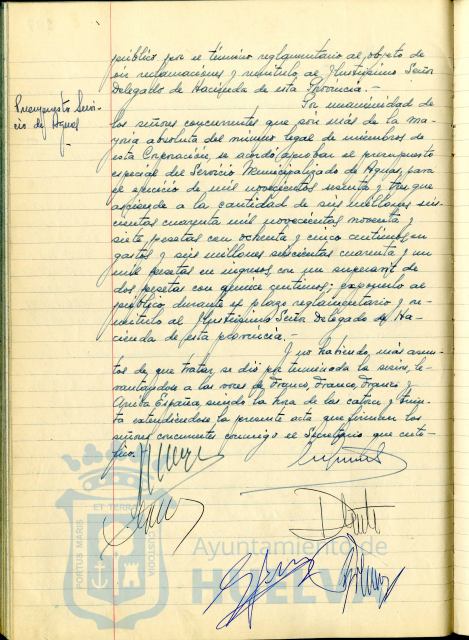 público por el término reglamentario al objeto de
oir reclamaciones y remítulo al Ilustrísimo Señor
Delegado de Hacienda de esta Provincia.-
Presupuesto Servi-
cio de Aguas
Por unanimidad de
los señores concurrentes que son más de la ma-
yoría absoluta del número legal de miembros de
esta Corporación, se acordó aprobar el presupuesto
especial del Servicio Municipalizado de Aguas, para
el ejercicio de mil novecientos sesenta y tres que
asciende a la cantidad de seis millones seis
cientas cuarenta mil novecientas noventa y
siete pesetas con ochenta y cinco céntimos, en
gastos y seis millones seiscientas cuarenta y un
mil pesetas en ingresos, con un superavit de
dos pesetas con quince céntimos; exponerlo al
público, durante el plazo reglamentario y re-
mítulo al Ilustrísimo Señor Delegado de Ha-
cienda de esta provincia.-
Y no habiendo, más asun-
tos de que tratar, se dió por terminada la sesión, le-
vantándose a las voces de Franco, Franco, Franco y
Arriba España, siendo la hora de las catorce y trein-
ta extendiéndose la presente acta que firman los
señores concurrentes conmigo el Secretario que certi-
fico.
PORTUS MARIS ET TERRAE CUSTODIA
Ayuntamiento de
HUELVA